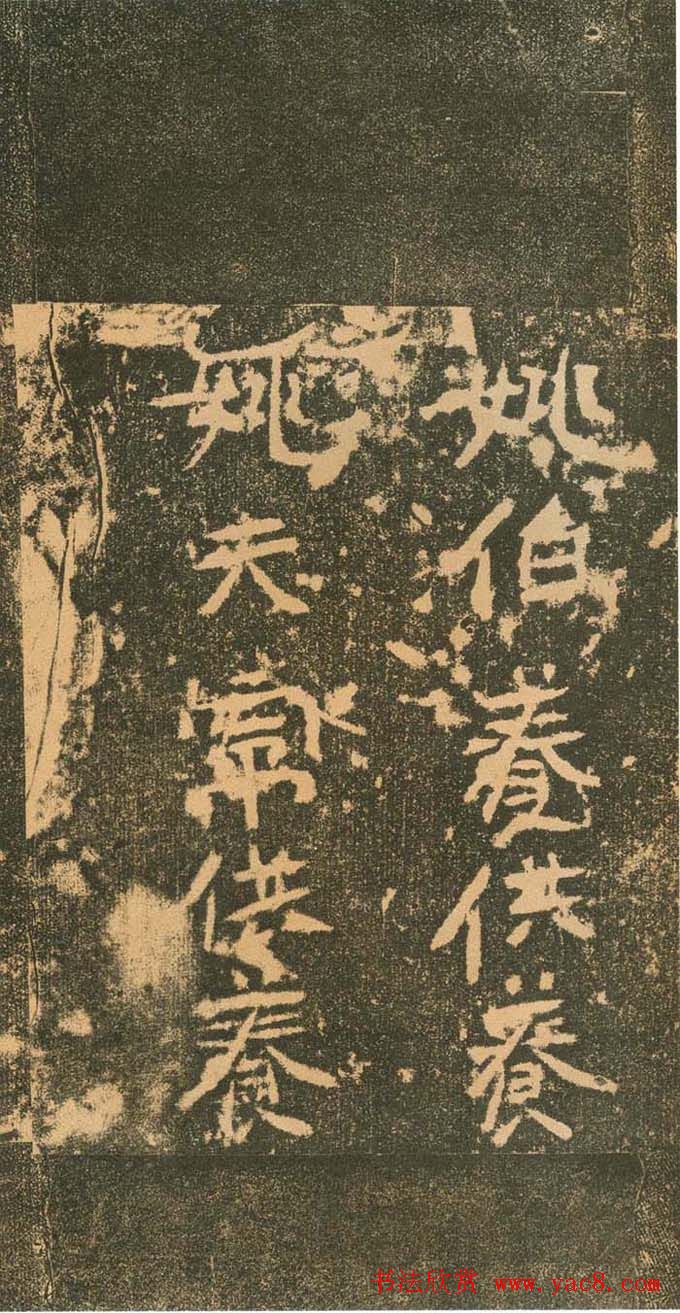 姚伯養供養
姚夫常供養
书法欣赏 www.yac8.com